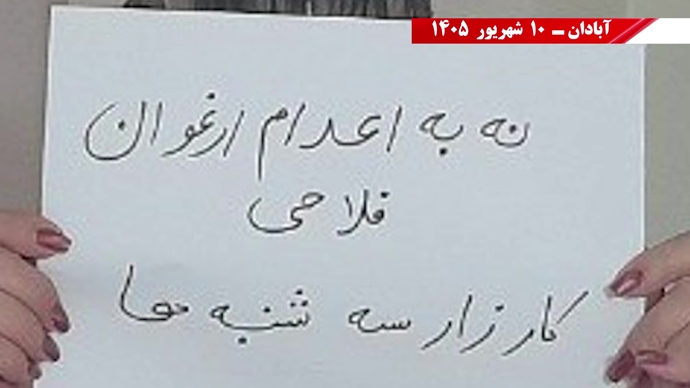 آبادان ـ ۱۰ شهریور ۱۴۰۵
نه به اعدام ارغوان
فلاحی
کارزار سه شنبه ها